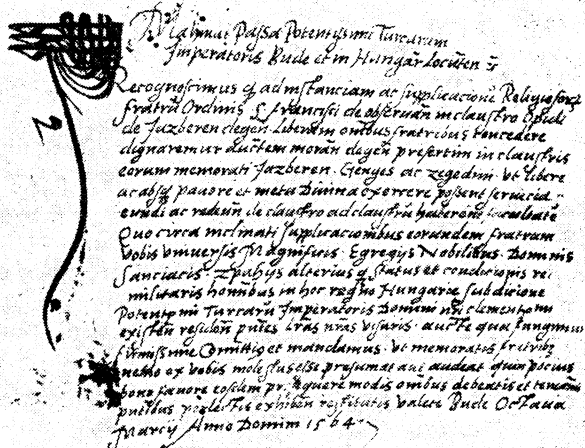 Mahmut Passa Potentissimi Turcarum
Imperatoris Bude et in Hungar Locūten
Recognoscimus q ad instanciam ac supplicacionē Religiosorū
fratrū Ordinis S francisci de observan in claustro Opidi
de Jazberen degen Liberam omībus fratribus concedere
dignaremur auctem moran degen presertim in claustris
eorum memorati Jazberen. Genges ac zegedini. vt libere
ac absq pavore et metu Divina exercere possent servicia
eundi ac redeun de claustro ad claustrū haberent facultatē
Quo circa inclinati supplicacionibus eorundem fratrum
vobis vniversis Magnificis. Egregys Nobilibus. Dominis
Sanciacis Zpahys alterius q status et condicionis rei
militaris hominibus in hoc regno Hungariae sub dicione
Potentssmi Turcarū Imperatoris Domini nri clementssmi
existen residen pntes Lras nras visuris. aucte qua fungimur
firmissime Comittiq et mandamus. vt memoratis fratribz
nemo ex vobis molestus esse presumat aut audeat quin pocius
bono favore eosdem modis omībus debeatis et teneamī
pntibus perlectis exhiben restitutis valete Bude Octava
Marcy Anno Domini 1564